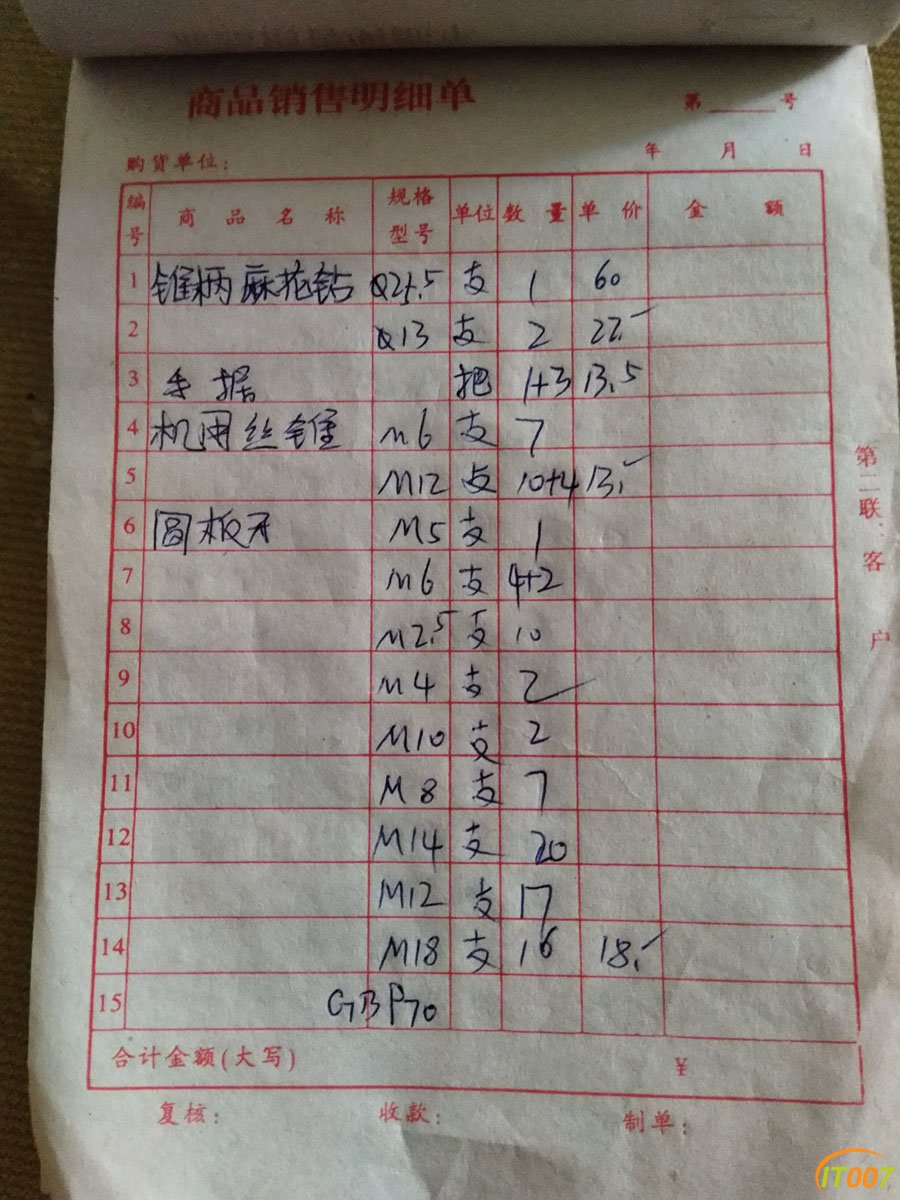 商品销售明细单
第 号
购货单位: 年 月 日
编号 商品名称 规格型号 单位 数量 单价 金额
1 锥柄麻花钻 Q21.5 支 1 60
2 Q13 支 2 22.-
3 手据 把 1+3 13.5
4 机用丝锥 M6 支 7
5 M12 支 10+4 13.-
6 圆板牙 M5 支 1
7 M6 支 4+2
8 M2.5 支 10
9 M4 支 2
10 M10 支 2
11 M8 支 7
12 M14 支 20
13 M12 支 17
14 M18 支 16 18.-
15 GB P70
合计金额(大写) ¥
复核: 收款: 制单:
第二联:客户
IT007